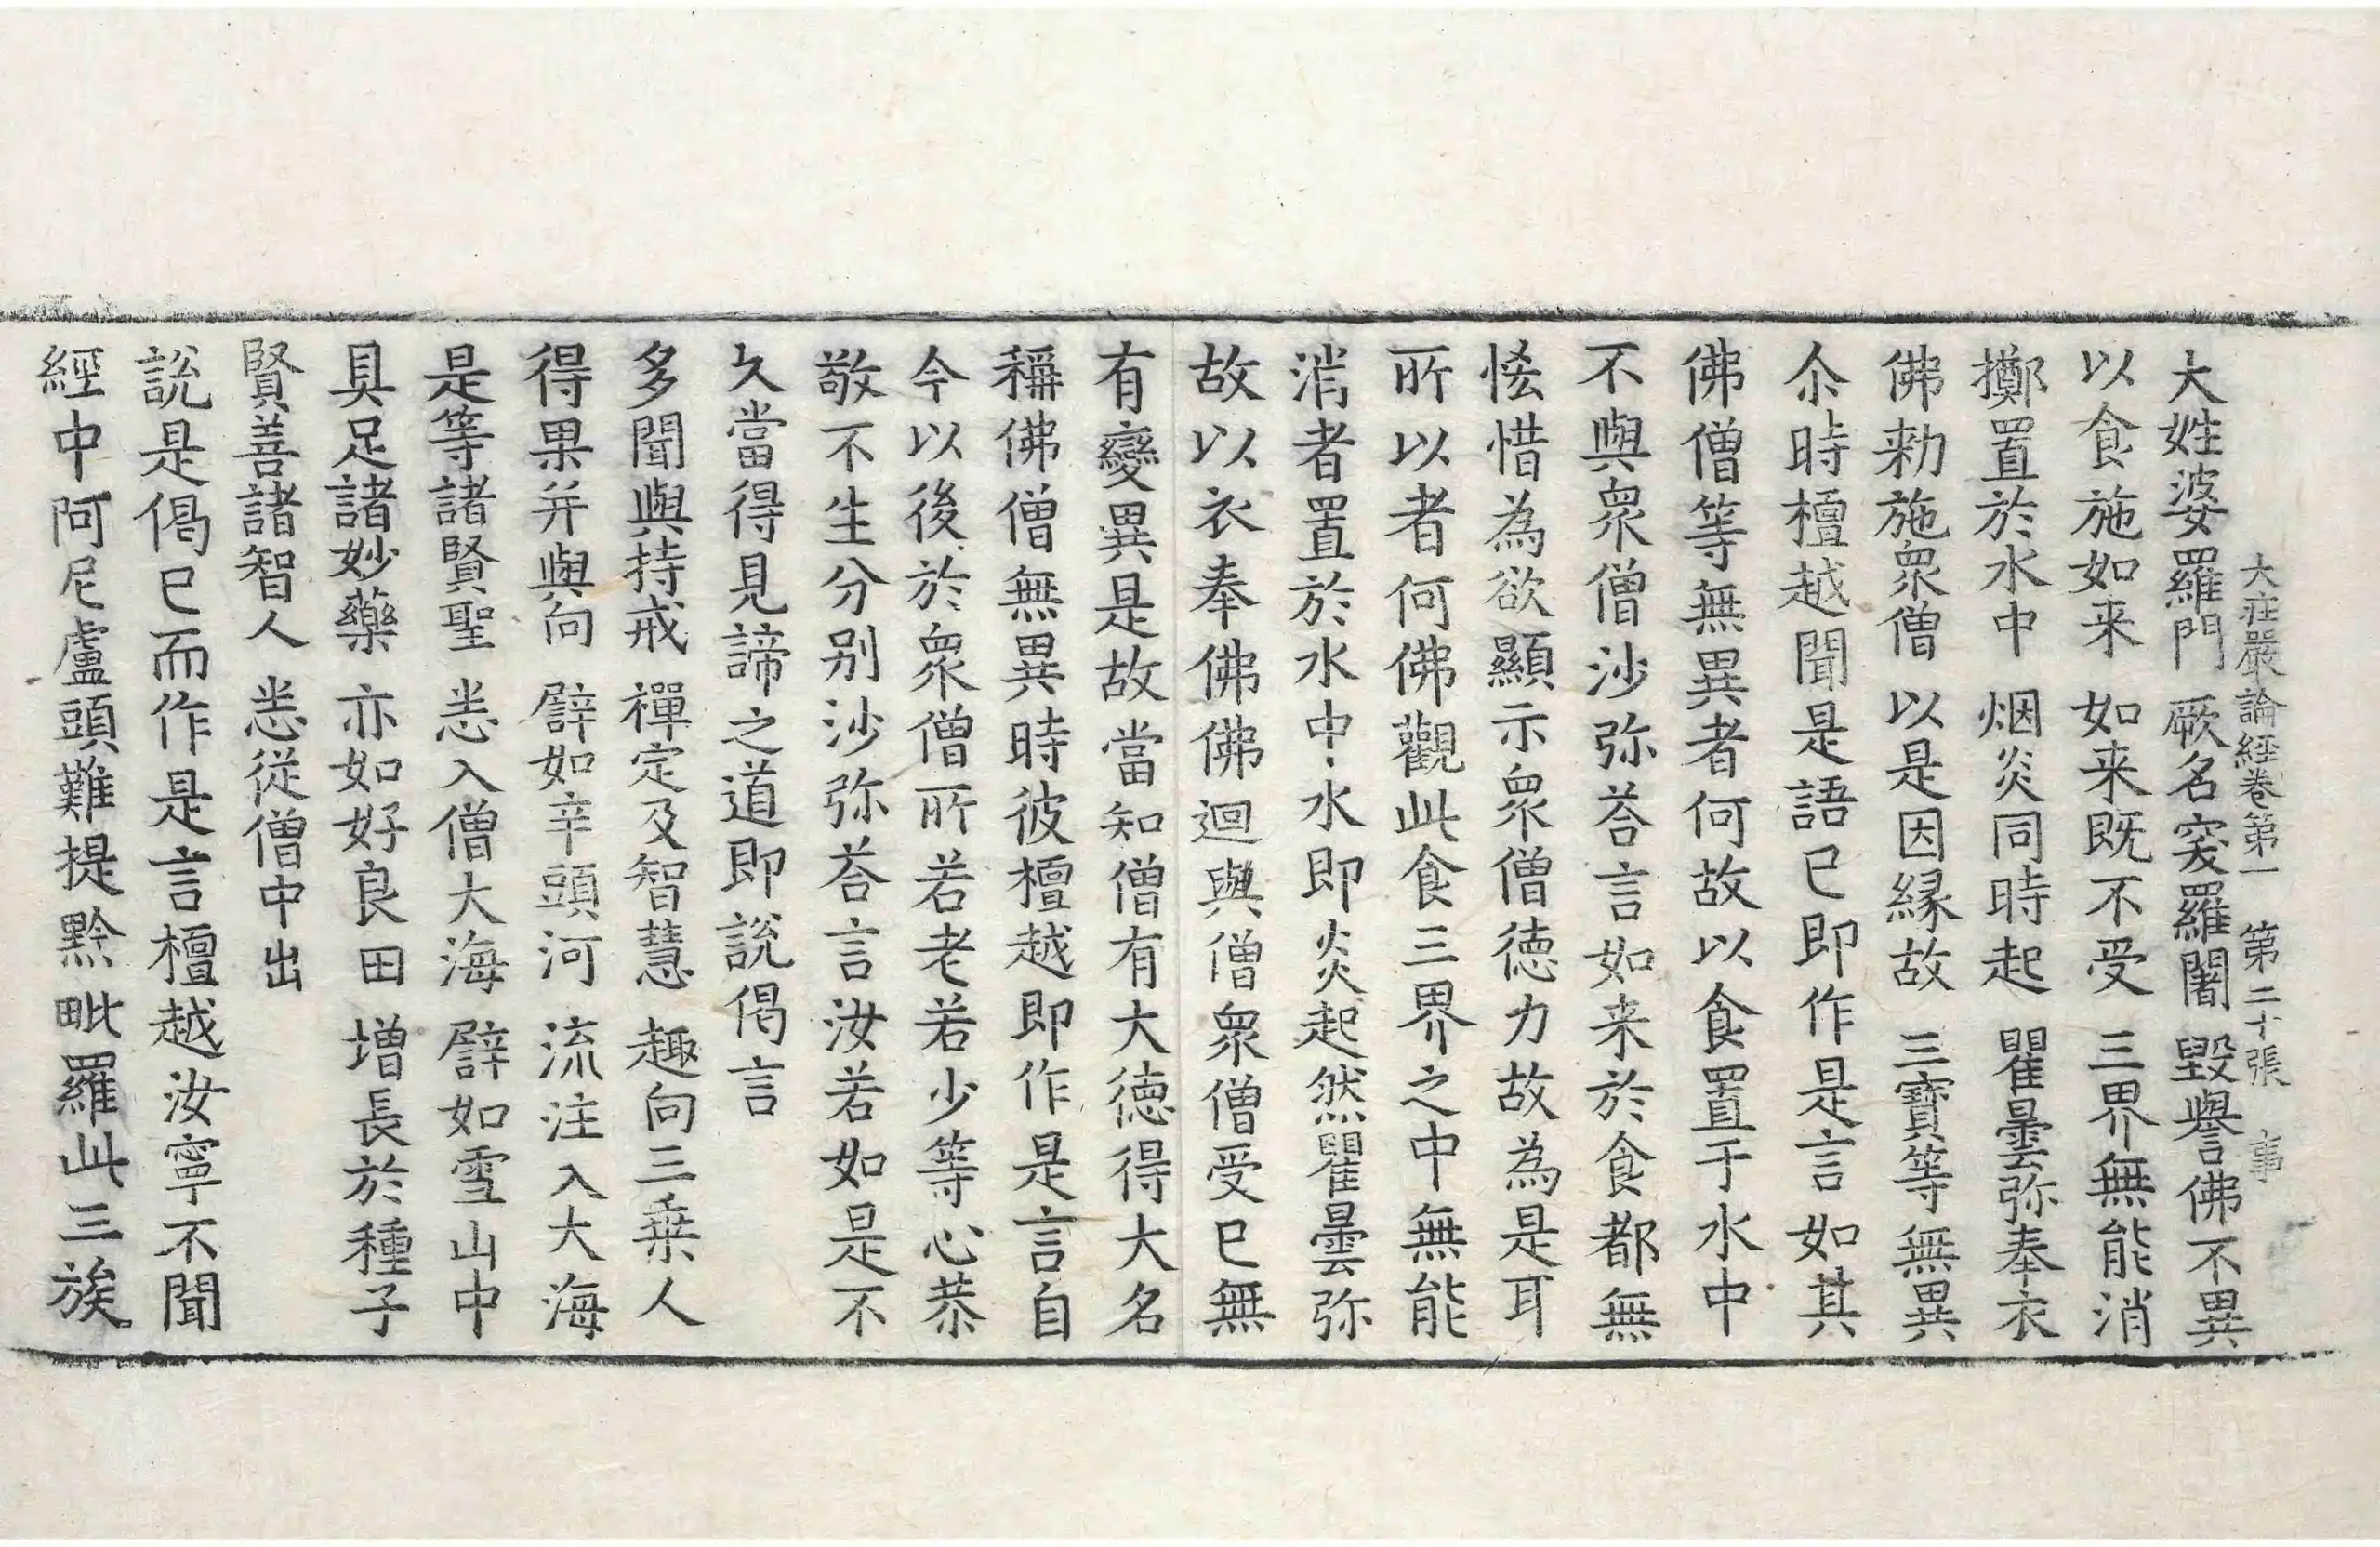 大莊嚴論經卷第一　第二十張　事
大姓婆羅門　厥名突羅闍　毀譽佛不異
以食施如来　如来既不受　三界無能消
擲置於水中　烟炎同時起　瞿曇弥奉衣
佛勑施衆僧　以是因縁故　三寶等無異
尒時檀越聞是語已即作是言如其
佛僧等無異者何故以食置于水中
不與衆僧沙弥荅言如来於食都無
恡惜為欲顯示衆僧德力故為是耳
所以者何佛觀此食三界之中無能
消者置於水中水即炎起然瞿曇弥
故以衣奉佛佛迴與僧衆僧受已無
有變異是故當知僧有大德得大名
稱佛僧無異時彼檀越即作是言自
今以後於衆僧所若老若少等心恭
敬不生分别沙弥荅言汝若如是不
久當得見諦之道即說偈言
多聞與持戒　禪定及智慧　趣向三乗人
得果并與向　譬如辛頭河　流注入大海
是等諸賢聖　悉入僧大海　譬如雪山中
具足諸妙藥　亦如好良田　增長於種子
賢善諸智人　悉從僧中出
說是偈已而作是言檀越汝寧不聞
經中阿尼盧頭難提黔毗羅此三族